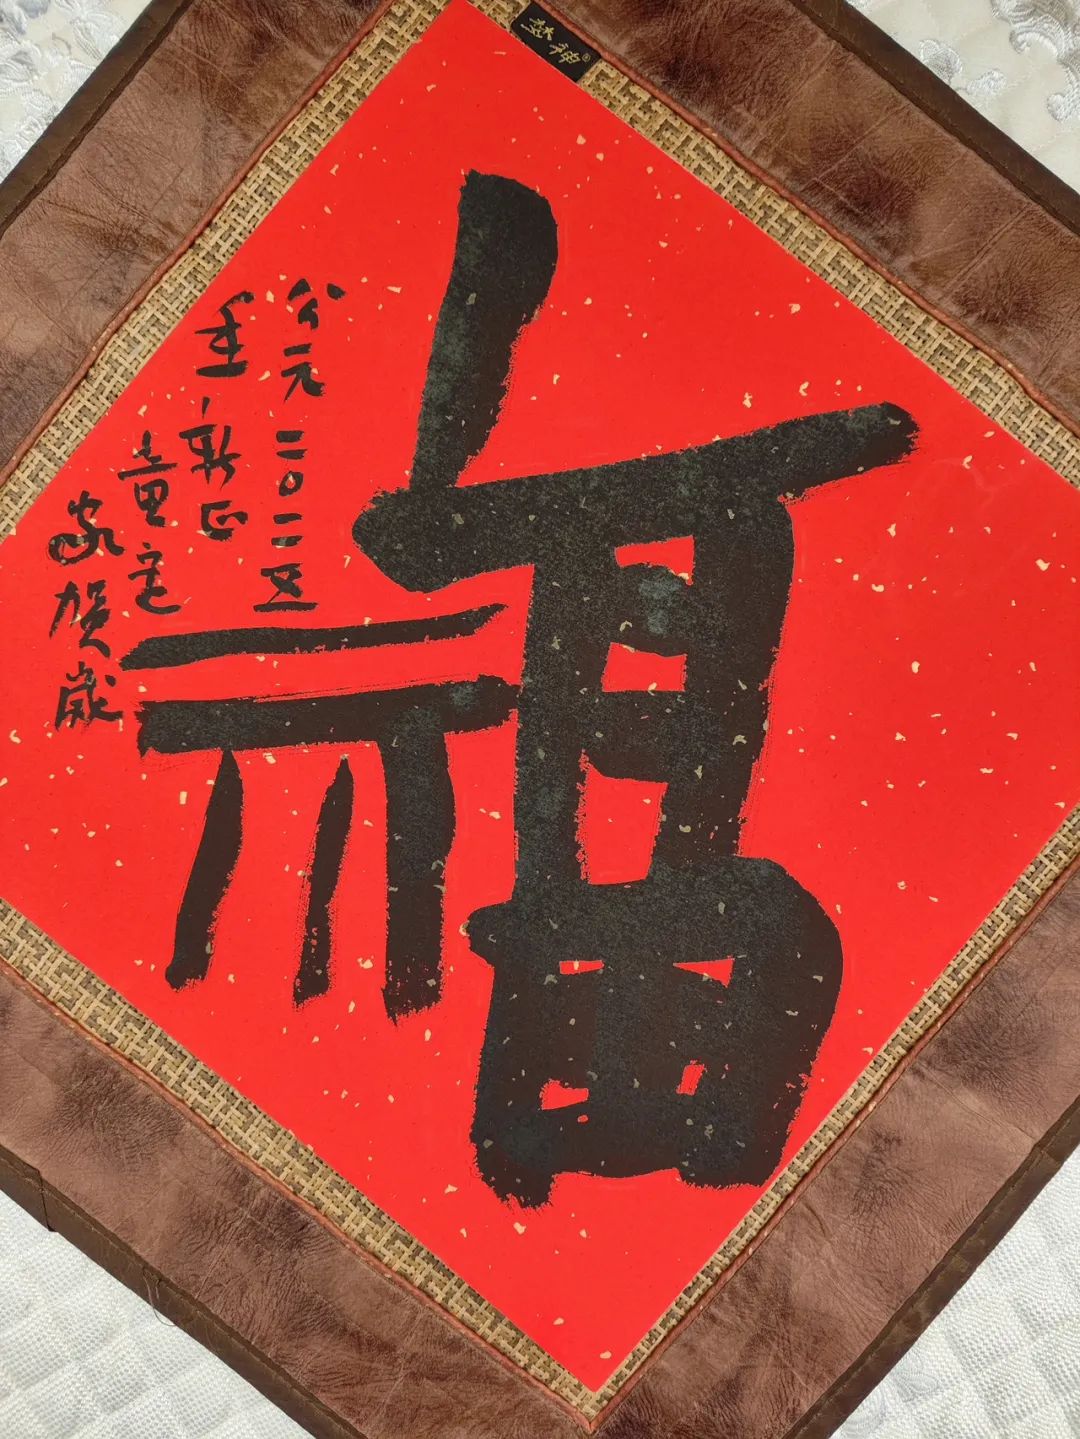 福
公元二〇二五
年新正
敬賀歲